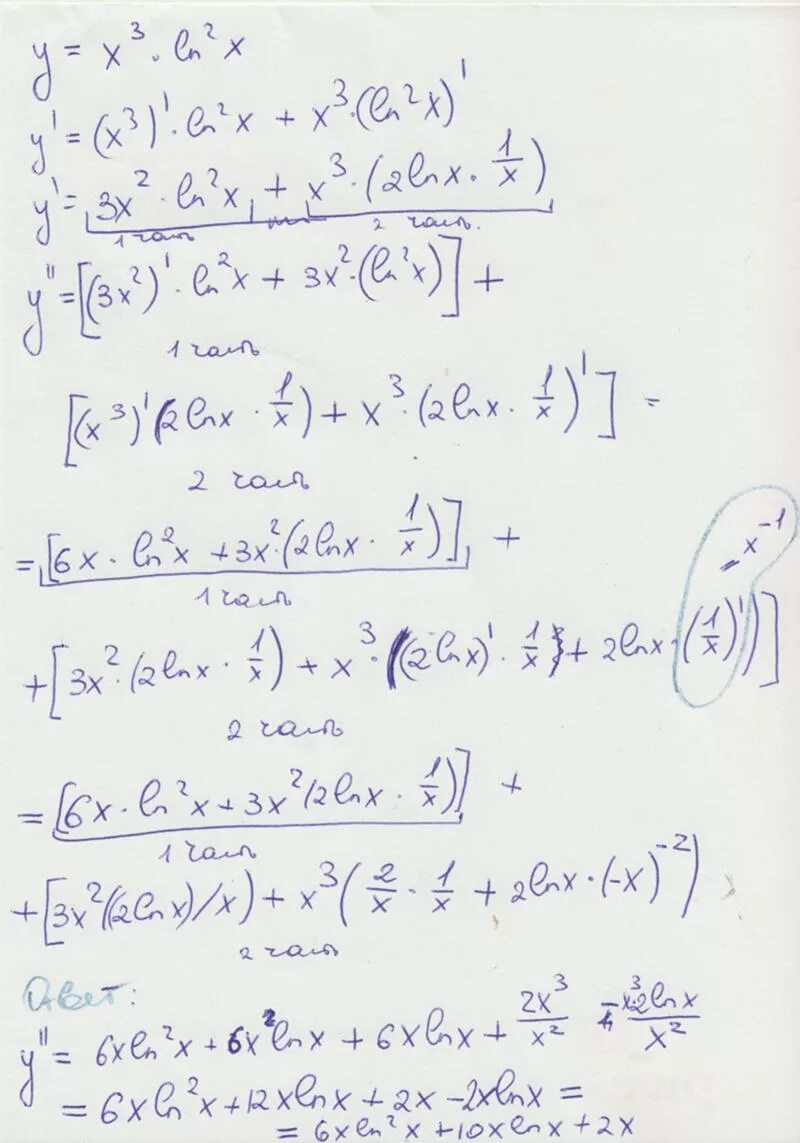 y = x³ · ln²x
y' = (x³)' · ln²x + x³ · (ln²x)'
y' = 3x² · ln²x + x³ · (2lnx · 1/x)
1 часть 2 часть.
y'' = [(3x²)' · ln²x + 3x² · (ln²x)] +
1 часть
[(x³)' (2lnx · 1/x) + x³ · (2lnx · 1/x)'] =
2 часть
= [6x · ln²x + 3x² · (2lnx · 1/x)] +
= x⁻¹
1 часть
+ [3x² · (2lnx · 1/x) + x³ · ((2lnx)' · 1/x + 2lnx · (1/x)')]
2 часть
= [6x · ln²x + 3x² (2lnx · 1/x)] +
1 часть
+ [3x² ((2lnx)/x) + x³ (2/x · 1/x + 2lnx · (-x)⁻²)
2 часть
Ответ:
y'' = 6xln²x + 6x²lnx + 6xlnx + 2x³/x² - x³·2lnx/x²
= 6xln²x + 12xlnx + 2x - 2xlnx =
= 6xln²x + 10xlnx + 2x